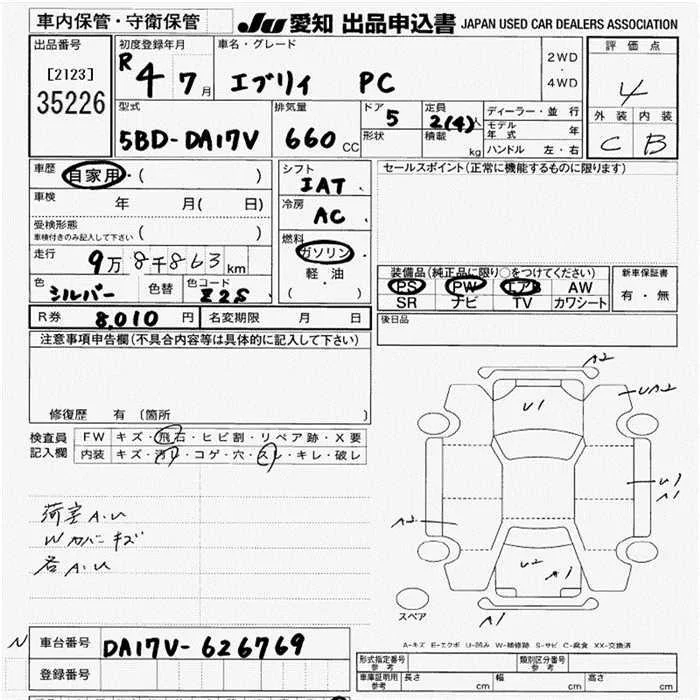 車内保管・守衛保管 JU 愛知 出品申込書 JAPAN USED CAR DEALERS ASSOCIATION
出品番号 初度登録年月 車名・グレード 評価点
[2123] R4 7月 エブリイ PC 2WD・4WD 4
35226
型式 排気量 ドア 定員 ディーラー・並行 外装 内装
5BD-DA17V 660CC 5 2(4)人 モデル年式 年 C B
形状 積載 kg ハンドル 左・右
車歴 自家用・( ) シフト セールスポイント(正常に機能するものに限ります)
IAT
車検 年 月( 日) 冷房
AC
受検形態
車検付きのみ記入して下さい ( )
燃料
走行 9万8千863km ガソリン
軽・油
( ・ )
装備品(純正品に限り○をつけてください) 新車保証書
色 シルバー 色替 色コード Z2S PS PW エアB AW 有・無
SR ナビ TV カワシート
R券 8,010円 名変期限 月 日 後日品
注意事項申告欄(不具合内容等は具体的に記入して下さい)
修復歴 有(箇所 )
検査員 FW キズ・飛石・ヒビ割・リペア跡・X要
記入欄 内装 キズ・汚レ・コゲ・穴・スレ・キレ・破レ
A2
UA2
U1
U1
A1
A2
U2
A1
A1
荷室A.U
Wカバーキズ
各A.U
スペア
A-キズ E-エクボ U-凹み W-補修跡 S-サビ C-腐食 XX-交換済
N 車台番号 DA17V-626769
登録番号
形式指定番号 参考 類別区分番号 参考
車庫証明用 参考 長さ cm 幅 cm 高さ cm